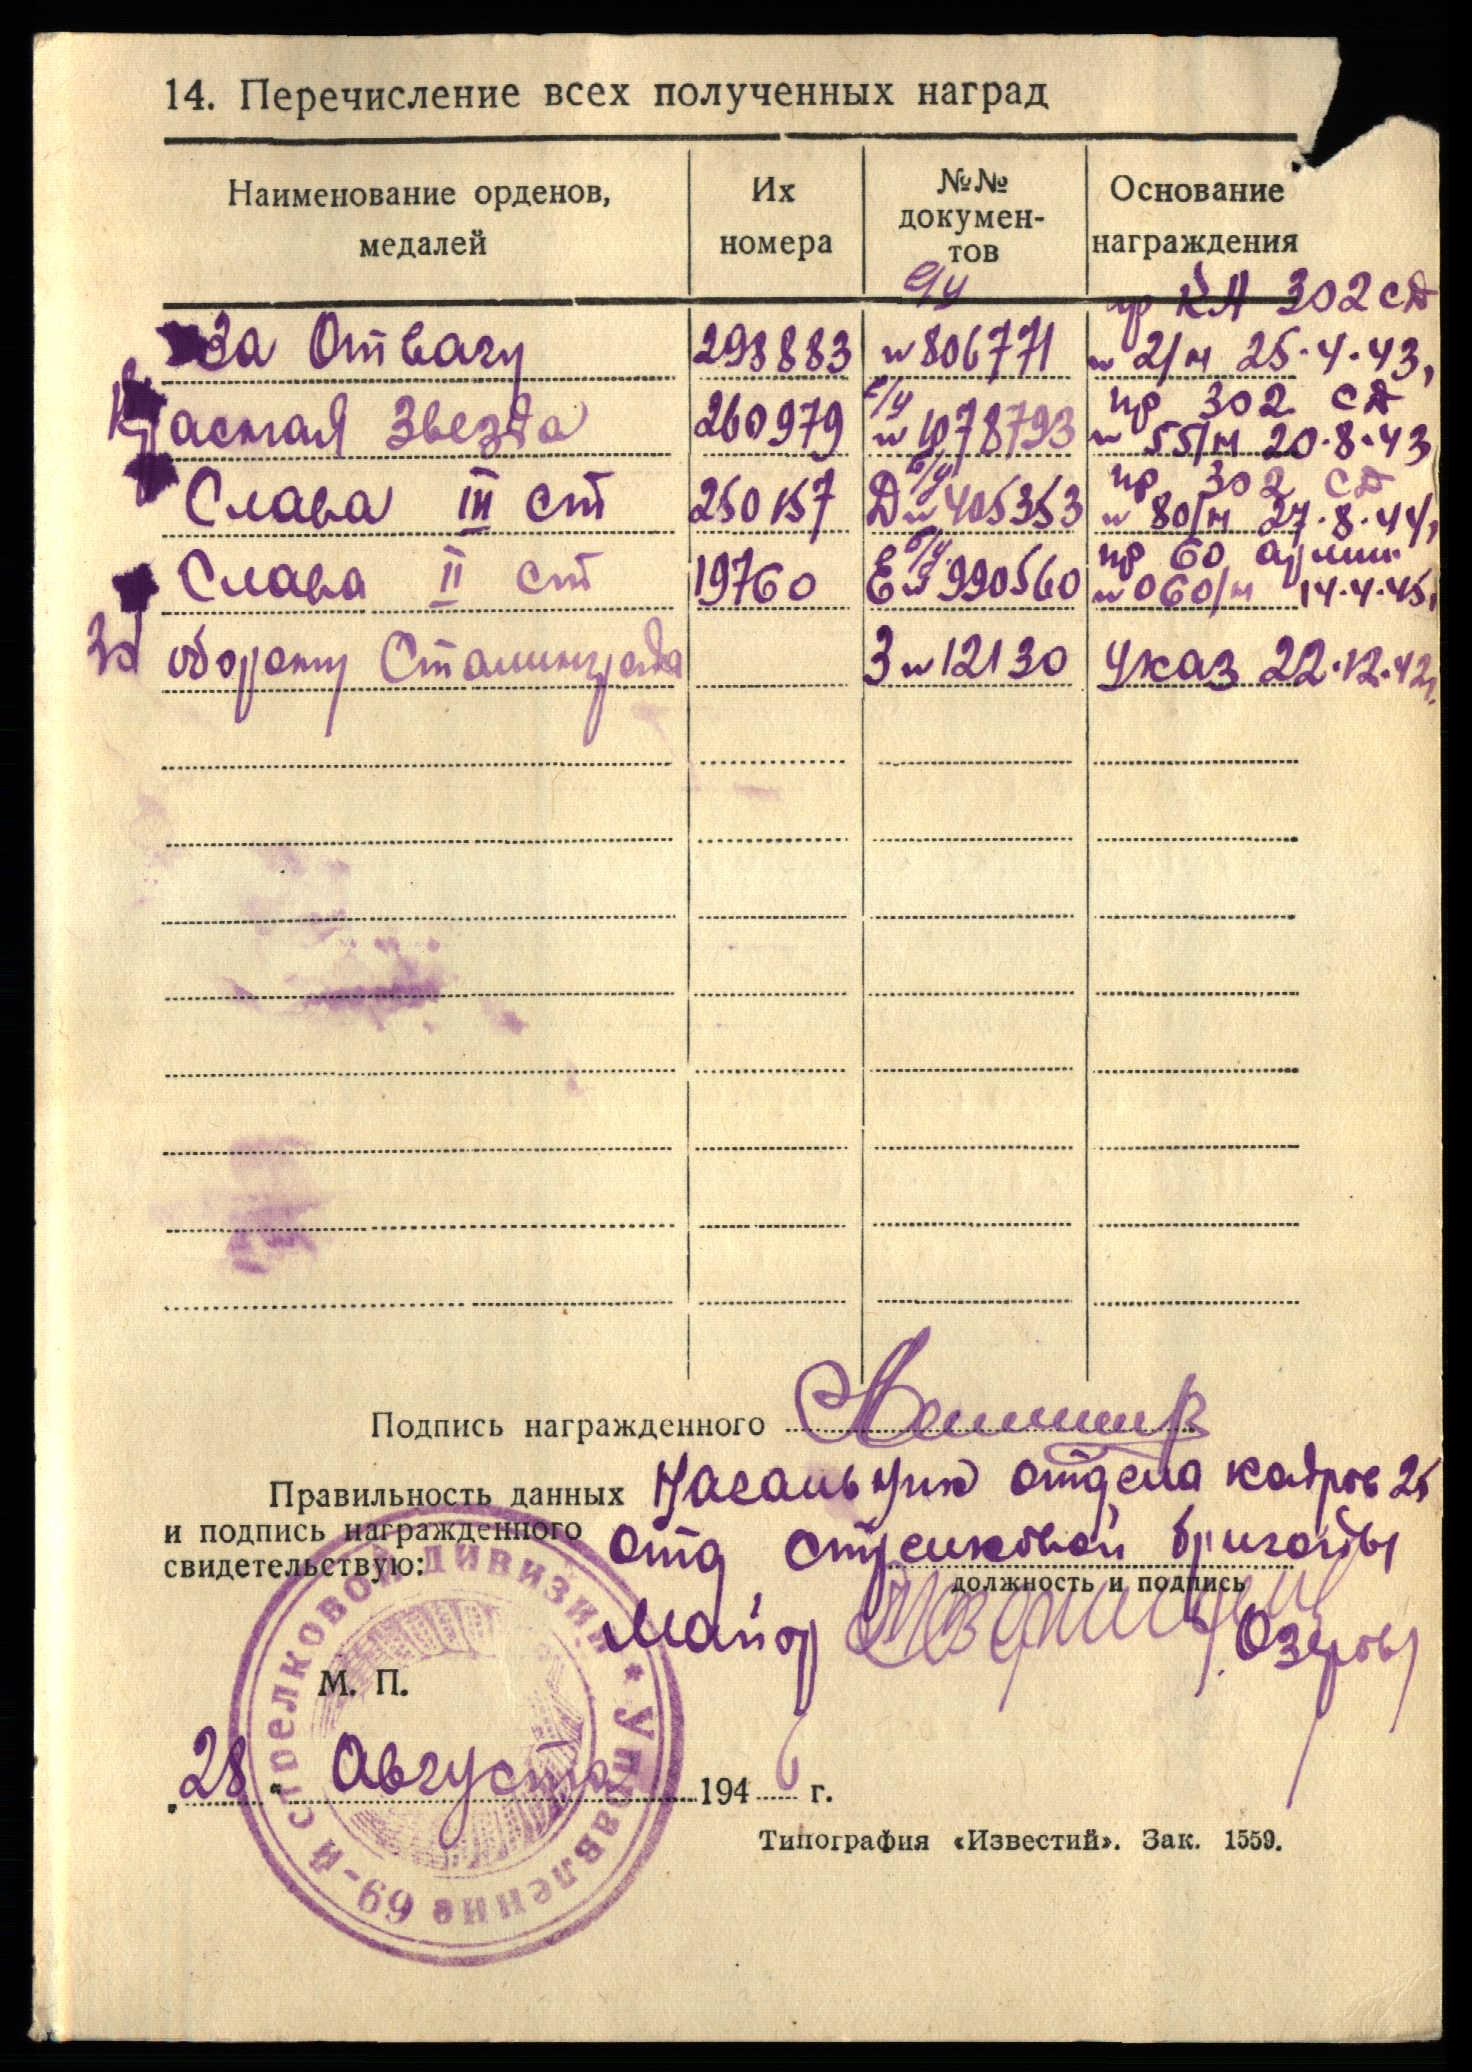 14. Перечисление всех полученных наград
Наименование орденов, медалей
Их номера
№№ докумен-тов
Основание награждения
б/у пр КА 302 сд
За Отвагу 298883 № 806771 № 21/н 25.4.43,
б/у пр 302 сд
Красная Звезда 260979 № 1078793 № 55/н 20.8.43
б/у пр 302 сд
Слава III ст 250157 Д № 405353 № 80/н 27.8.44,
б/у пр 60 армии
Слава II ст 19760 Е № 990560 № 060/н 14.4.45,
За оборону Сталинграда З № 12130 Указ 22.12.42г.
Подпись награжденного
Правильность данных Начальник отдела кадров 25
и подпись награжденного
свидетельствую: отд стрелковой бригады
должность и подпись
Майор Озеров
М. П.
„28“ Августа 1946 г.
Типография «Известий». Зак. 1559.
Управление 69-й стрелковой дивизии *